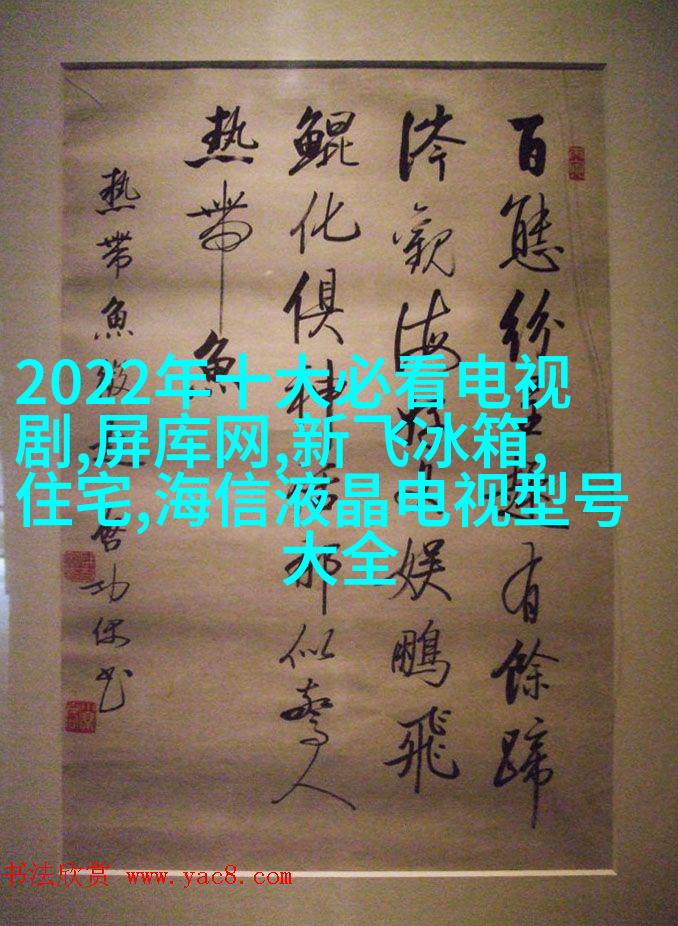 百態紛呈趣有餘蹄
涔觀海娱鵬飛
鯤化俱神話那似人
熱帶魚
热帶魚啓功
2022年十大必看电视
剧,屏库网,新飞冰箱,
住宅,海信液晶电视型号
大全
书法欣赏 www.yac8.com